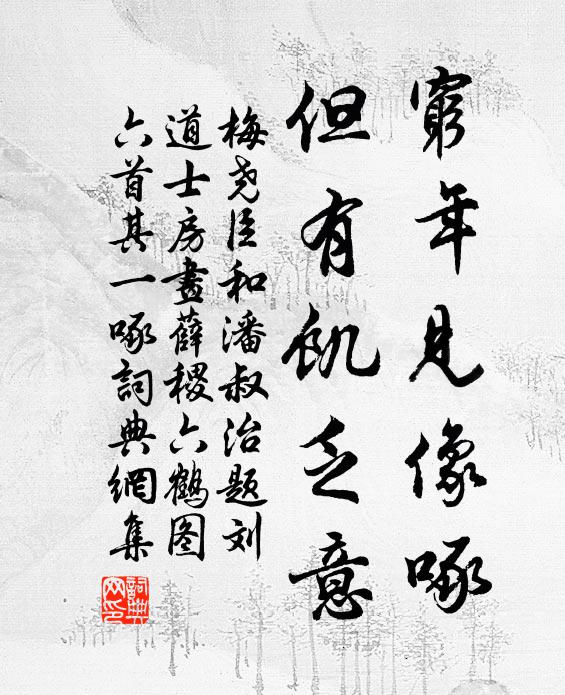 窮年見像啄
但有飢乏意
梅尧臣和潘叔治题刘
道士房畫薛稷六鶴图
六首其一啄詞典網集
詞典
网印